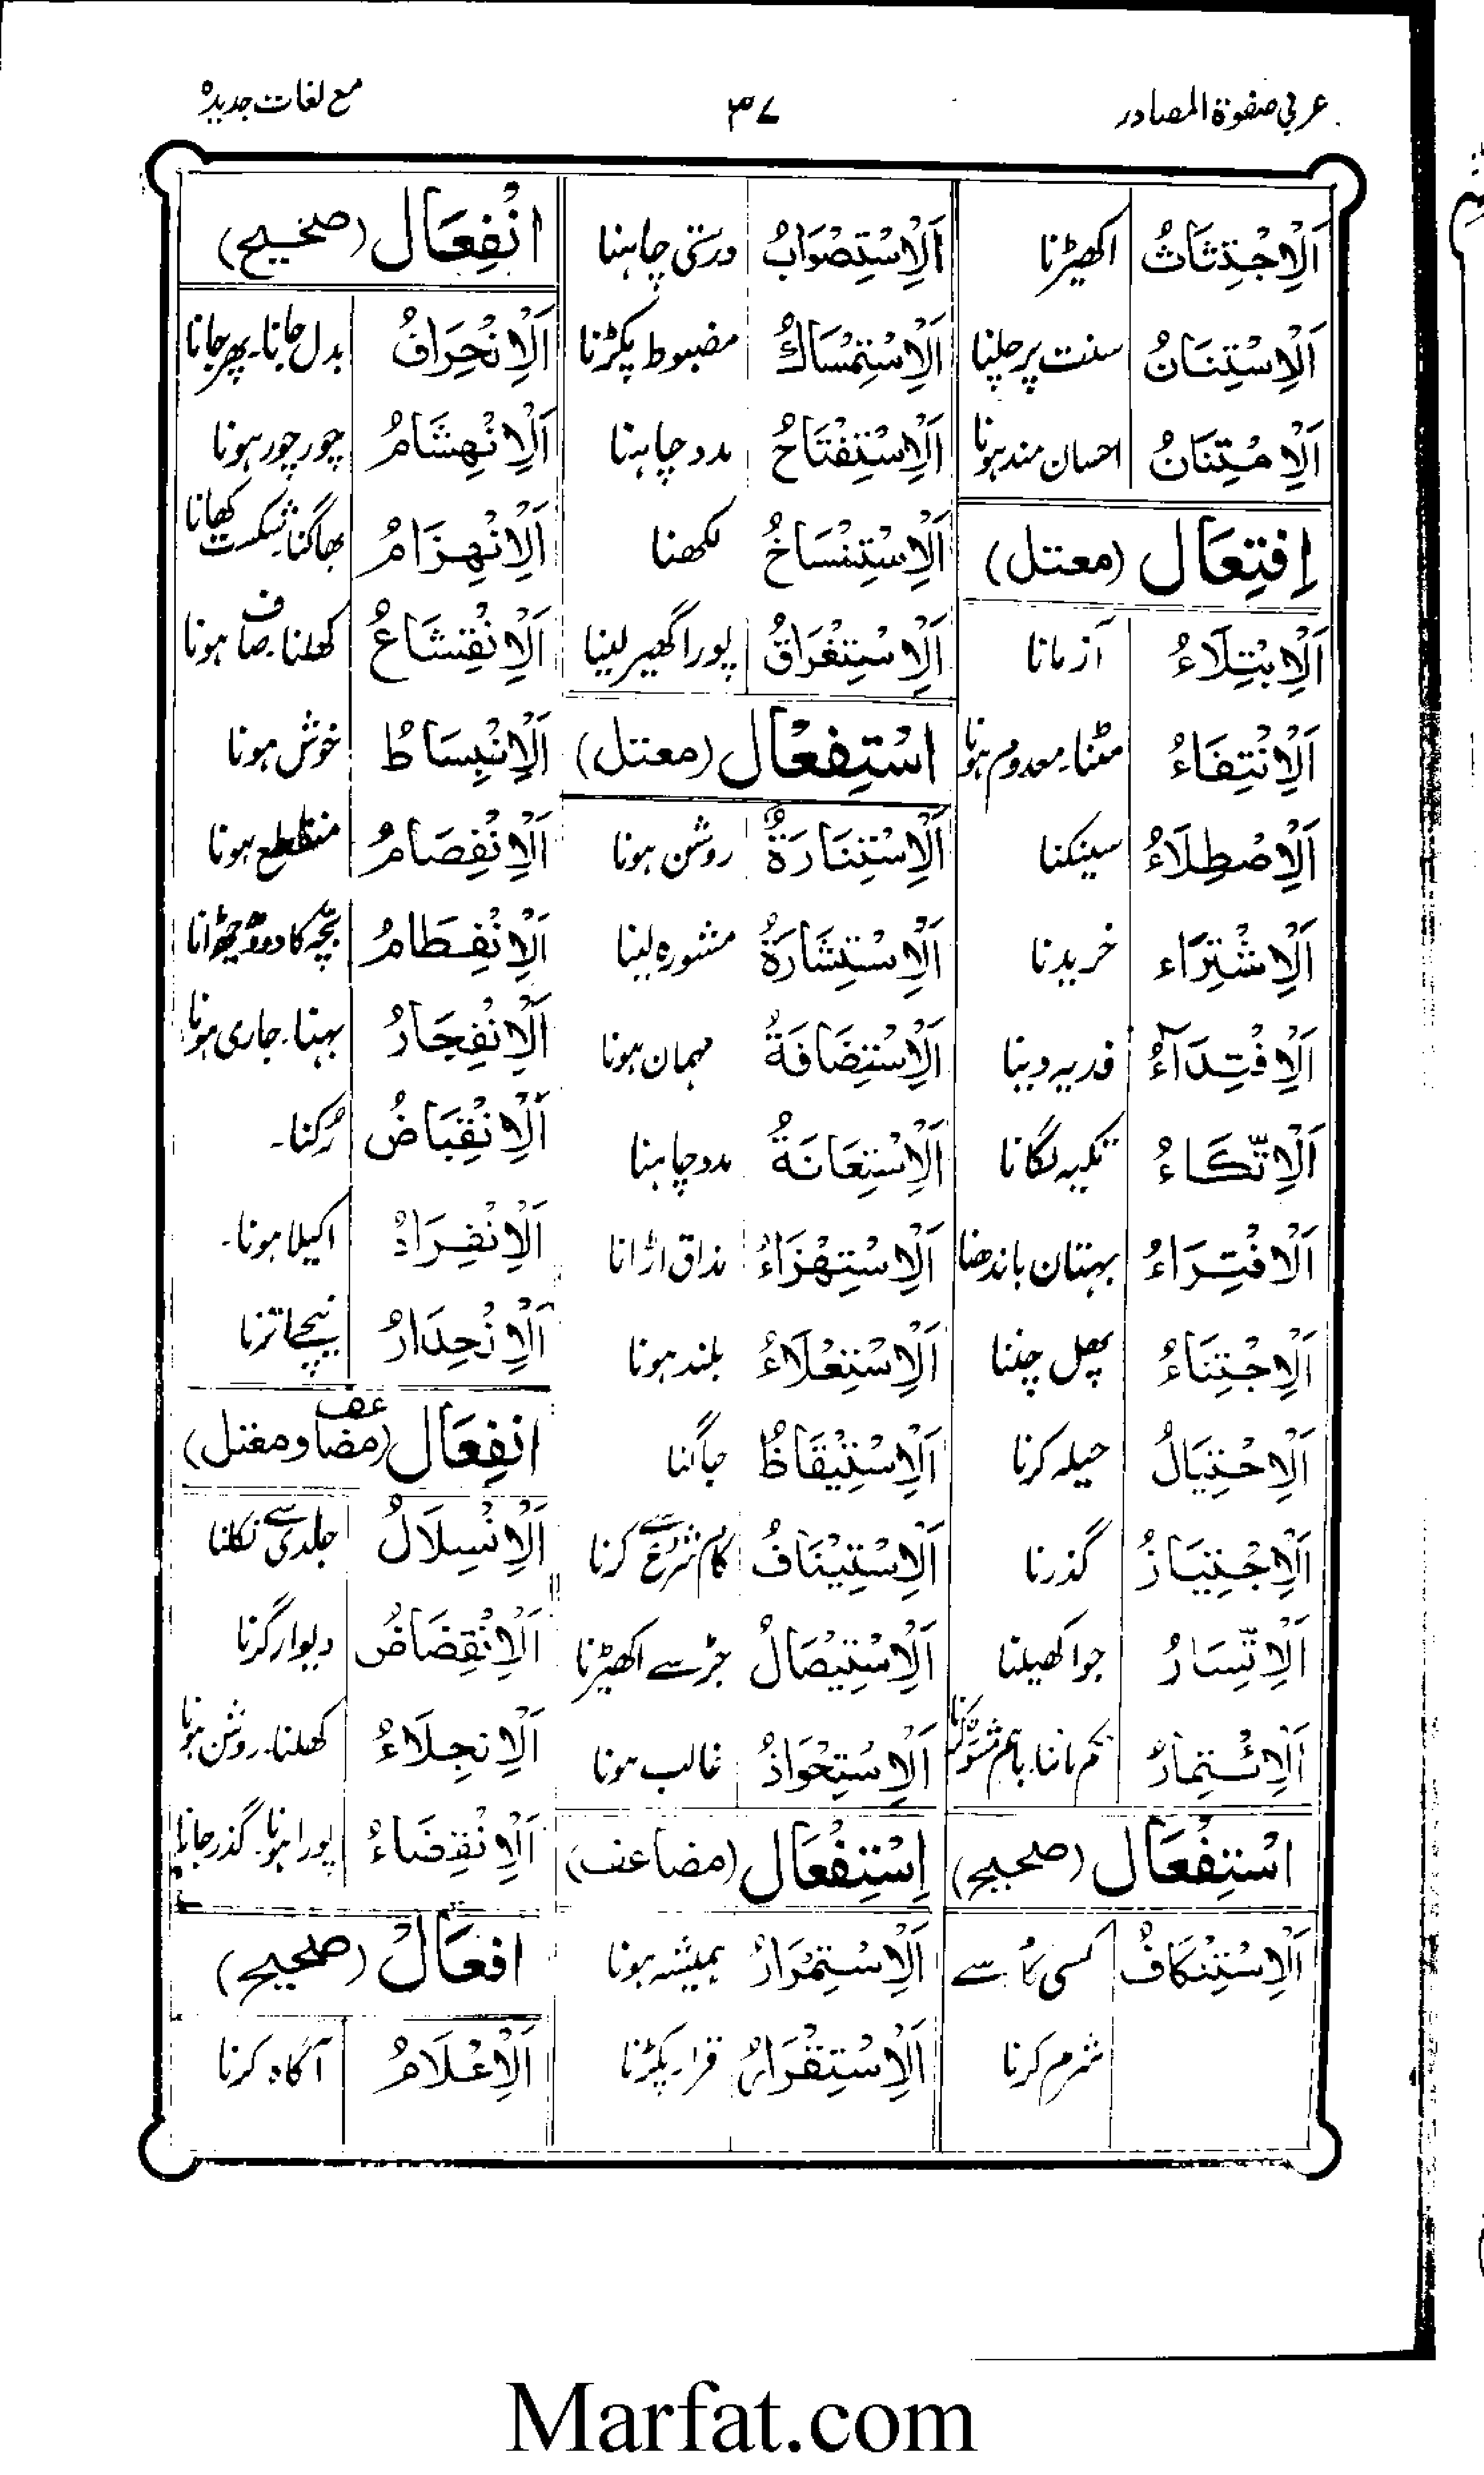 عربی صفوۃ المصادر
۳۷
مع لغات جدیدہ
اَلْاِجْتِثَاثُ اکھیڑنا
اَلْاِسْتِنَانُ سنت پر چلنا
اَلْاِمْتِنَانُ احسان مند ہونا
اِفتِعَال (معتل)
اَلْاِبْتِلَاءُ آزمانا
اَلْاِنْتِفَاءُ مٹنا۔ معدوم ہونا
اَلْاِصْطِلَاءُ سینکنا
اَلْاِشْتِرَاء خریدنا
اَلْاِفْتِدَآءُ فدیہ دینا
اَلْاِتِّكَاءُ تکیہ لگانا
اَلْافْتِرَاءُ بہتان باندھنا
اَلْاِجْتِنَاءُ پھل چننا
اَلْاِحْتِيَالُ حیلہ کرنا
اَلْاِجْتِيَازُ گذرنا
اَلْاِتِّسَارُ جوا کھیلنا
اَلْاِئْتِمَارُ حکم ماننا۔ باہم مشورہ کرنا
اسْتِفْعَال (صحیح)
اَلْاِسْتِنْكَافُ کسی کام سے
شرم کرنا
اَلْاِسْتِصْوَابُ درستی چاہنا
اَلْاِسْتِمْسَاكُ مضبوط پکڑنا
اَلْاِسْتِفْتَاحُ مدد چاہنا
اَلْاِسْتِنْسَاخُ لکھنا
اَلْاِسْتِغْرَاقُ پورا گھیر لینا
اسْتِفعْال (معتل)
اَلْاِسْتِنَارَةُ روشن ہونا
اَلْاِسْتِشَارَةُ مشورہ لینا
اَلْاِسْتِضَافَةُ مہمان ہونا
اَلْاِسْتِعَانَةُ مدد چاہنا
اَلْاِسْتِهْزَاءُ مذاق اڑانا
اَلْاِسْتِعْلَاءُ بلند ہونا
اَلْاِسْتِيْقَاظُ جاگنا
اَلْاِسْتِيْنَافُ کام شروع سے کرنا
اَلْاِسْتِيْصَالُ جڑ سے اکھیڑنا
اَلْاِسْتِحْوَاذُ غالب ہونا
اِسْتِفْعَال (مضاعف)
اَلْاِسْتِمْرَارُ ہمیشہ ہونا
اَلْاِسْتِقْرَارُ قرار پکڑنا
انْفِعَال (صحیح)
اَلْاِنْحِرَافُ بدل جانا۔ پھر جانا
اَلْاِنْهِشَامُ چور چور ہونا
اَلْاِنْهِزَامُ بھاگنا شکست کھانا
اَلْاِنْقِشَاعُ کھلنا۔ صاف ہونا
اَلْاِنْبِسَاطُ خوش ہونا
اَلْاِنْفِصَامُ منقطع ہونا
اَلْاِنْفِطَامُ بچّہ کا دودھ چھڑانا
اَلْاِنْفِجَارُ بہنا۔ جاری ہونا
اَلْاِنْقِبَاضُ رُکنا۔
اَلْاِنْفِرَادُ اکیلا ہونا۔
اَلْاِنْحِدَارُ نیچے اترنا
انفِعَال (مضاعف و معتل)
اَلْاِنْسِلَالُ جلدی سے نکلنا
اَلْاِنْقِضَاضُ دیوار گرنا
اَلْاِنجِلَاءُ کھلنا۔ روشن ہونا
اَلْاِنْقِضَاءُ پورا ہونا۔ گذر جانا
افعَالْ (صحیح)
اَلْاِعْلَامُ آگاہ کرنا
Marfat.com